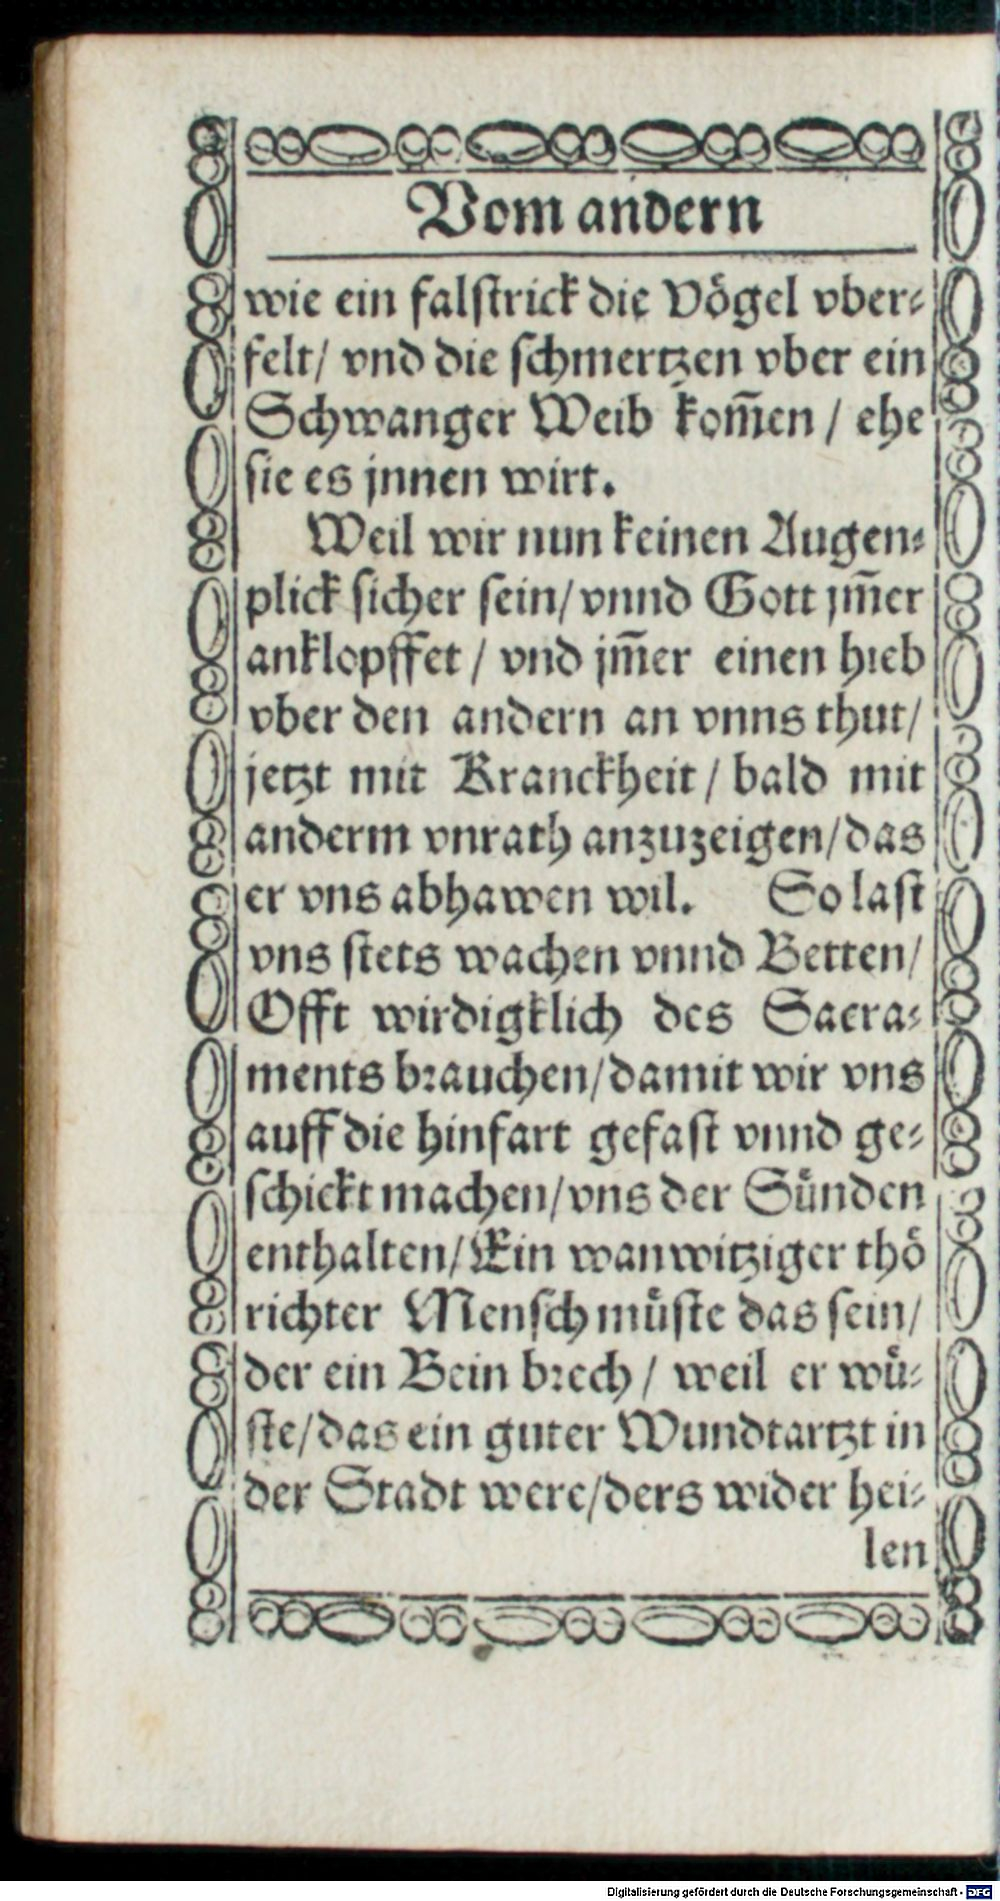 Vom andern
wie ein falſtrick die Vögel vber⸗
felt/ vnd die ſchmertzen vber ein
Schwanger Weib kom̃en / ehe
ſie es jnnen wirt.
Weil wir nun keinen Augen⸗
plick ſicher ſein/ vnnd Gott jm̃er
anklopffet / vnd jm̃er einen hieb
vber den andern an vnns thut/
jetzt mit Kranckheit / bald mit
anderm vnrath anzuzeigen/das
er vns abhawen wil. So laſt
vns ſtets wachen vnnd Betten/
Offt wirdigklich des Sacra⸗
ments brauchen/damit wir vns
auff die hinfart gefaſt vnnd ge⸗
ſchickt machen/vns der Sünden
enthalten/Ein wanwitziger thö
richter Menſch müſte das ſein/
der ein Bein brech / weil er wü⸗
ſte/das ein guter Wundtartzt in
der Stadt were/ders wider hei⸗
len
Digitalisierung gefördert durch die Deutsche Forschungsgemeinschaft - DFG